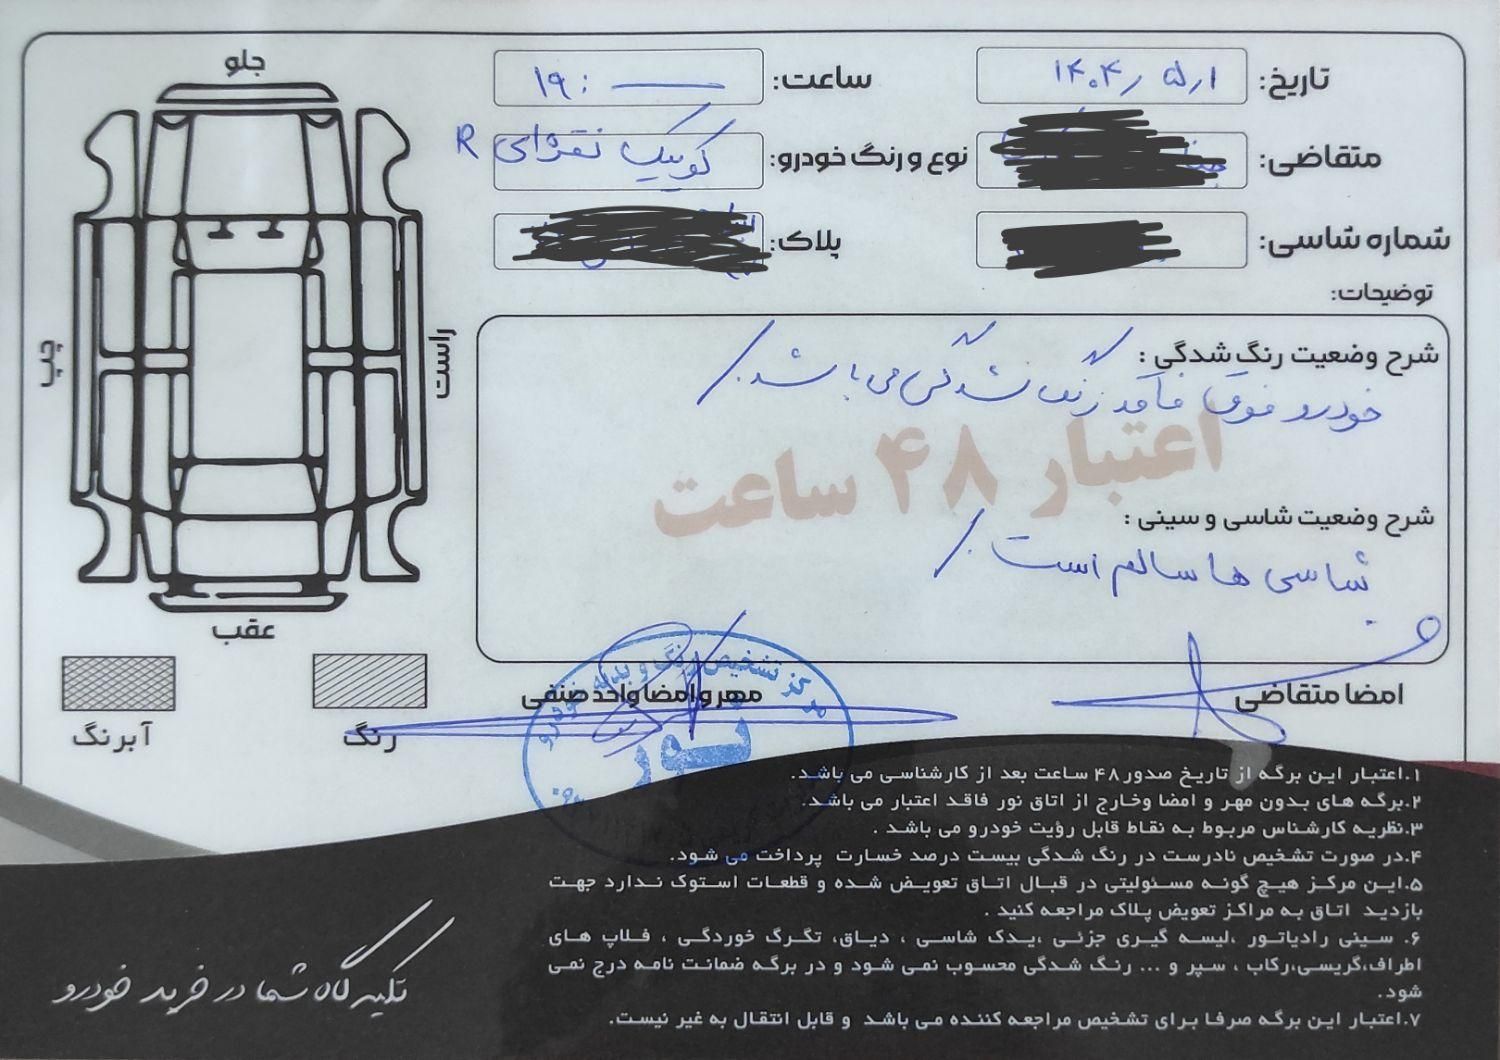 جلو
تاریخ: ۱۴۰۴/۵/۱
ساعت: ۱۹:
متقاضی:
نوع و رنگ خودرو: کوییک نقره‌ای R
شماره شاسی:
پلاک:
توضیحات:
چپ
راست
شرح وضعیت رنگ شدگی :
خودرو فوق فاقد رنگ شدگی می باشد.
اعتبار ۴۸ ساعت
شرح وضعیت شاسی و سینی :
شاسی ها سالم است.
عقب
آبرنگ
رنگ
مهر و امضا واحد صنفی
امضا متقاضی
مرکز تشخیص رنگ و بدنه خودرو
نور
۱.اعتبار این برگه از تاریخ صدور ۴۸ ساعت بعد از کارشناسی می باشد.
۲.برگه های بدون مهر و امضا وخارج از اتاق نور فاقد اعتبار می باشد.
۳.نظریه کارشناس مربوط به نقاط قابل رؤیت خودرو می باشد .
۴.در صورت تشخیص نادرست در رنگ شدگی بیست درصد خسارت پرداخت می شود.
۵.این مرکز هیچ گونه مسئولیتی در قبال اتاق تعویض شده و قطعات استوک ندارد جهت
بازدید اتاق به مراکز تعویض پلاک مراجعه کنید .
۶. سینی رادیاتور ،لیسه گیری جزئی ،یدک شاسی ، دیاق، تگرگ خوردگی ، فلاپ های
اطراف،گریسی،رکاب ، سپر و ... رنگ شدگی محسوب نمی شود و در برگه ضمانت نامه درج نمی
شود.
۷.اعتبار این برگه صرفا برای تشخیص مراجعه کننده می باشد و قابل انتقال به غیر نیست.
تکیه گاه شما در خرید خودرو